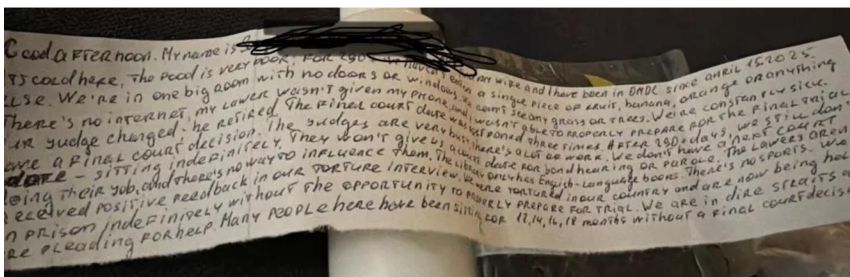 Good afternoon. My name is My wife and I have been in OMDC since April 15, 2025
It's cold here, the food is very poor, for 290 haven't eaten a single piece of fruit, banana, orange or anything
else. We're in one big room with no doors or windows. We can't see any grass or trees. We're constantly sick.
There's no internet, my lawer wasn't given my phone, and I wasn't able to properly prepare for the final trial
ur judge changed. he retired. The final court date was postponed three times. After 290+ days, we still don'
ave a final court decision. The judges are very busy, there's a lot of work. We don't have a next court
date - sitting indefinitely. They won't give us a date for bond hearing or parole. The lawers aren
oing their job, and there's no way to influence them. The library only has English-language books. There's no sports. We
eceived positive feedback in our torture interview. We were tortured in our country and are now being hel
n prison indefinitely without the opportunity to properly prepare for trial. We are in dire straits a
re pleading for help. Many people here have been sitting for 12, 14, 16, 18 months without a final court decis